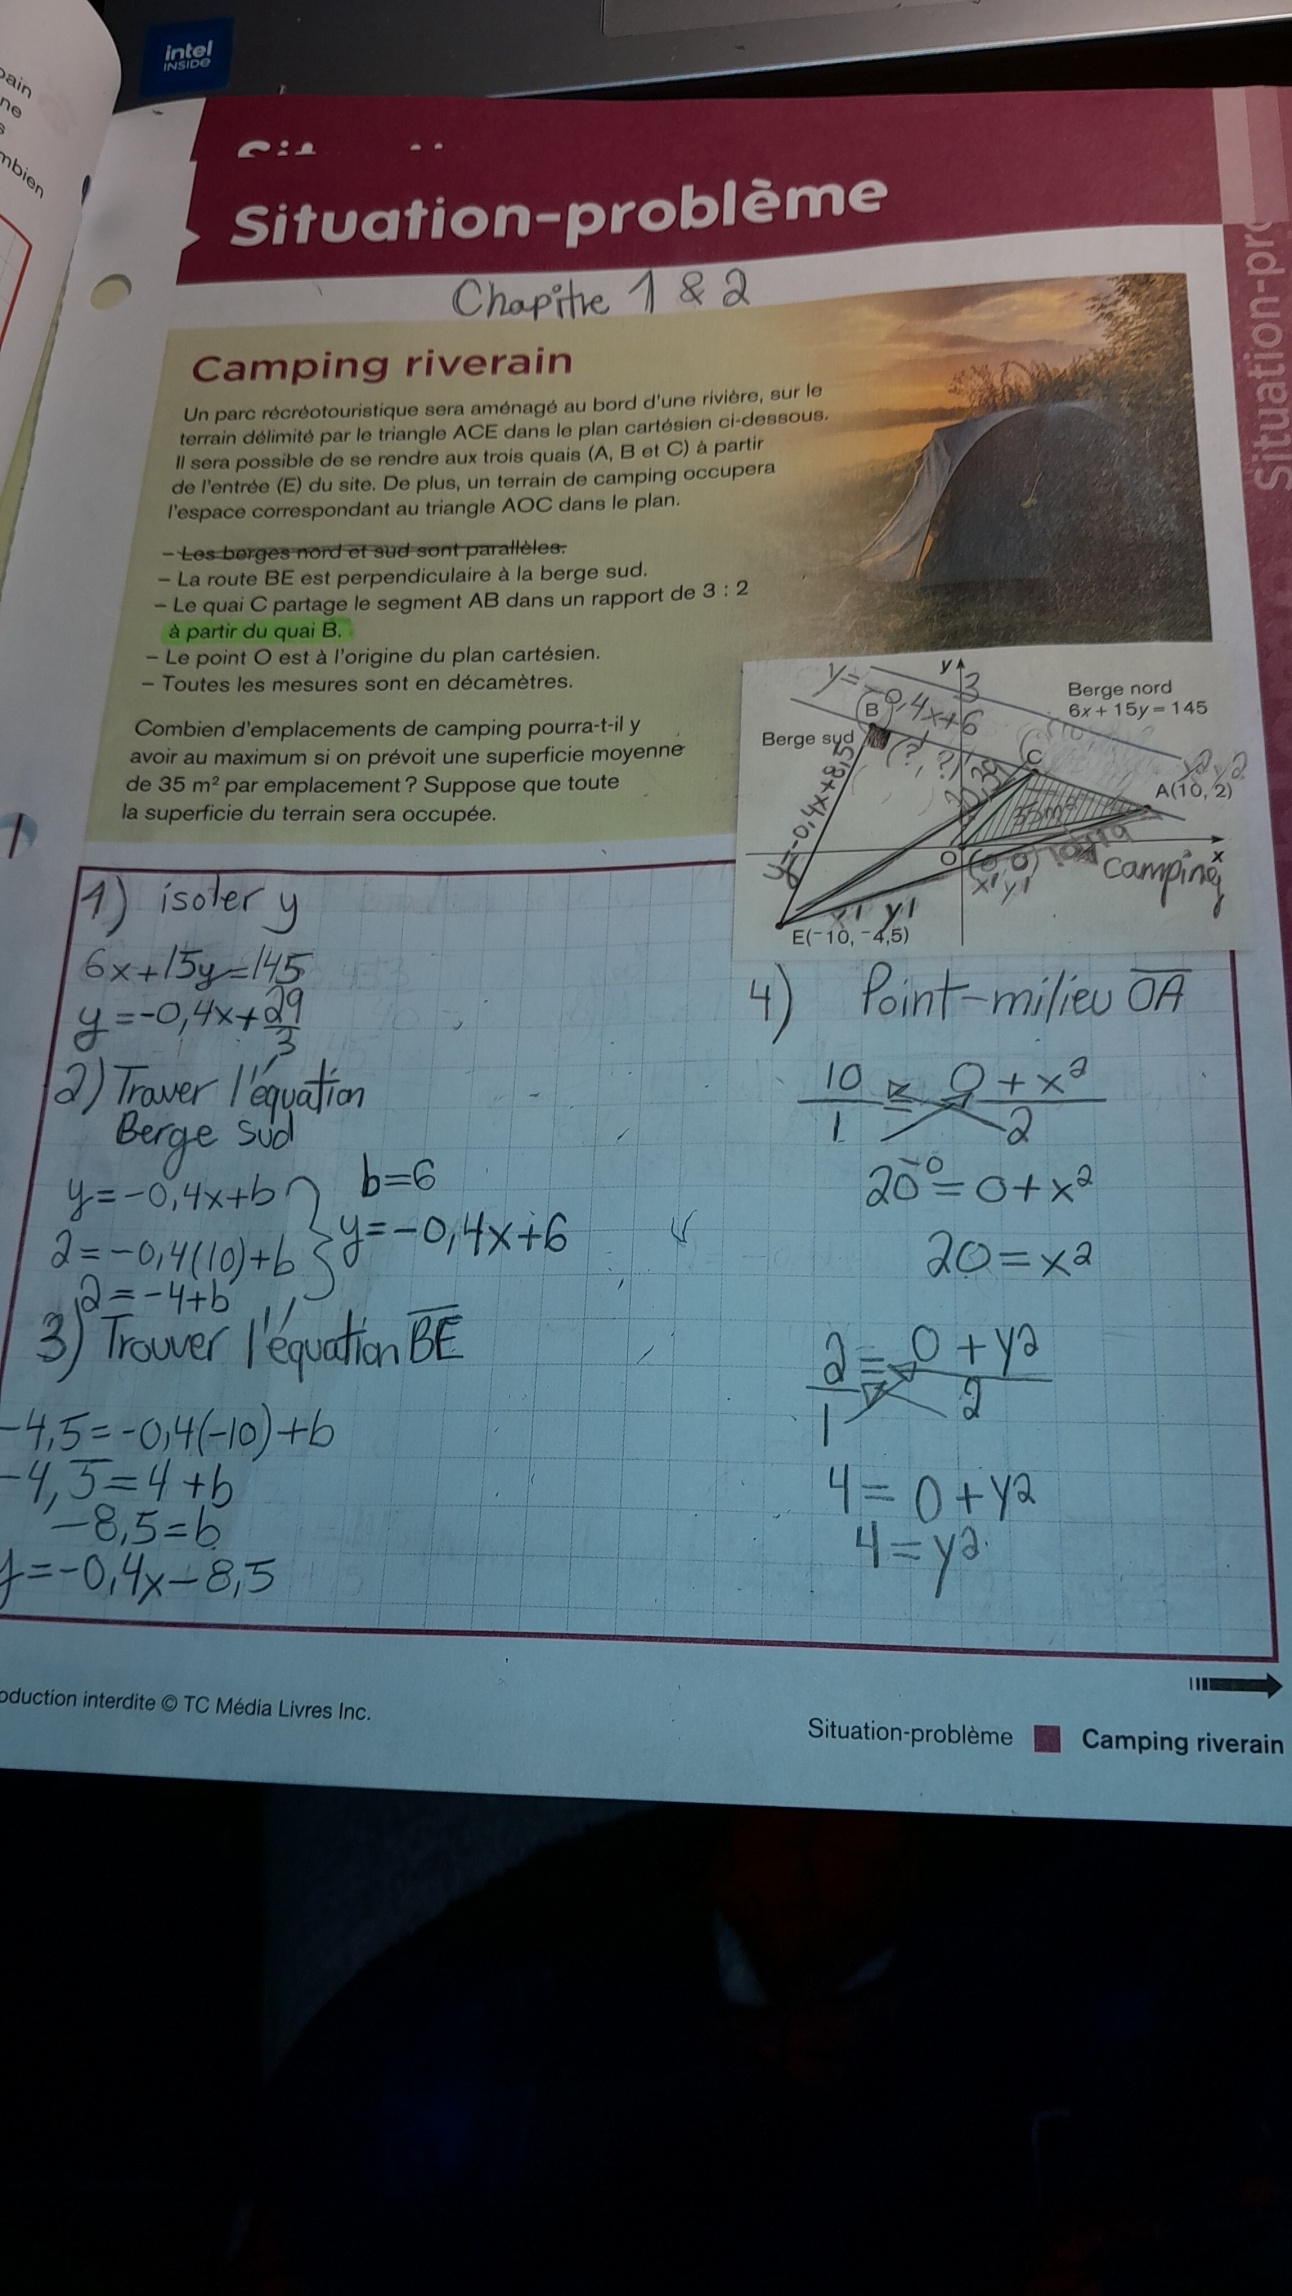 intel
INSIDE
pain
ne
s
mbien
Situation-problème
Situation-pro
Chapitre 1 & 2
Camping riverain
Un parc récréotouristique sera aménagé au bord d'une rivière, sur le
terrain délimité par le triangle ACE dans le plan cartésien ci-dessous.
Il sera possible de se rendre aux trois quais (A, B et C) à partir
de l'entrée (E) du site. De plus, un terrain de camping occupera
l'espace correspondant au triangle AOC dans le plan.
– Les berges nord et sud sont parallèles.
– La route BE est perpendiculaire à la berge sud.
– Le quai C partage le segment AB dans un rapport de 3 : 2
à partir du quai B.
– Le point O est à l'origine du plan cartésien.
– Toutes les mesures sont en décamètres.
Combien d'emplacements de camping pourra-t-il y
avoir au maximum si on prévoit une superficie moyenne
de 35 m² par emplacement ? Suppose que toute
la superficie du terrain sera occupée.
y
3
y=-0,4x+6
Berge nord
6x + 15y = 145
B
Berge sud
(?, ?)
C
x2 y2
A(10, 2)
y=-0,4x+8,5
35m²
O
(0,0)
x1 y1
x
Camping
x1 y1
E(⁻10, ⁻4,5)
1) isoler y
6x+15y=145
y=-0,4x+29/3
2) Trouver l'équation
Berge sud
y=-0,4x+b
2=-0,4(10)+b
2=-4+b
b=6
y=-0,4x+6
3) Trouver l'équation BE
-4,5=-0,4(-10)+b
-4,5=4+b
-8,5=b
y=-0,4x-8,5
4) Point-milieu OA
10/1 = 0+x2/2
20-0=0+x2
20=x2
2/1 = 0+y2/2
4=0+y2
4=y2
oduction interdite © TC Média Livres Inc.
Situation-problème Camping riverain